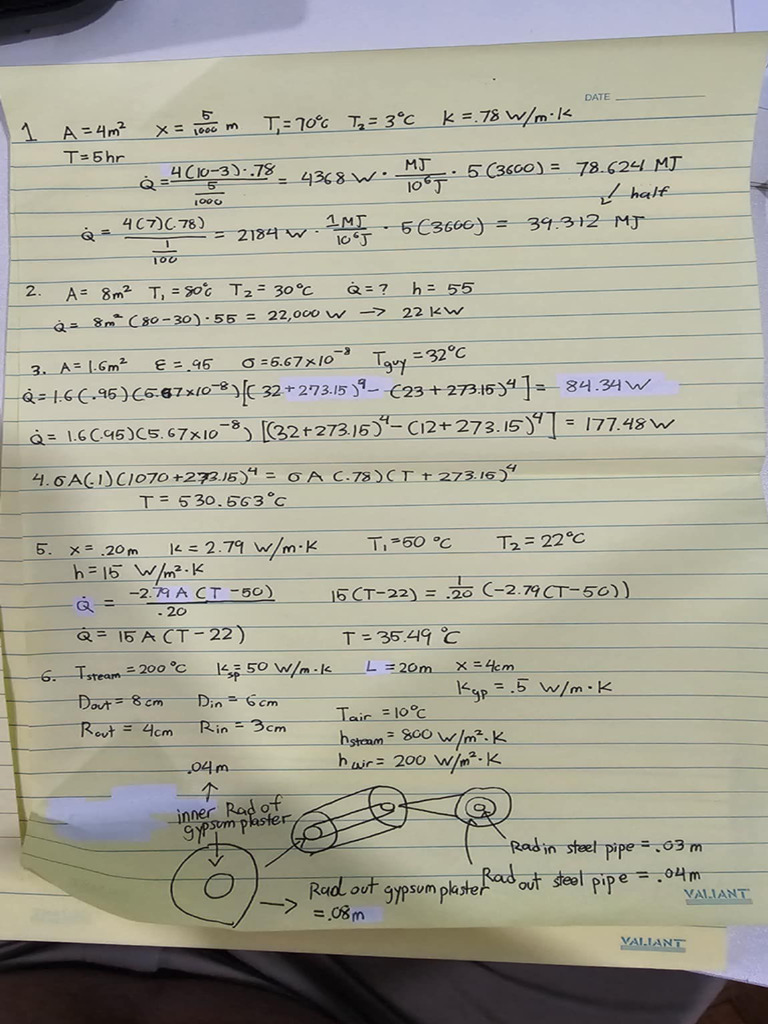 DATE
1 A = 4m² x = 5/1000 m T₁ = 70°C T₂ = 3°C K = .78 W/m·K
T = 5hr
Q̇ = 4(10-3)·.78 / (5/1000) = 4368 W · MJ/10⁶J · 5(3600) = 78.624 MJ
↙ half
Q̇ = 4(7)(.78) / (1/100) = 2184 W · 1MJ/10⁶J · 5(3600) = 39.312 MJ
2. A = 8m² T₁ = 80°C T₂ = 30°C Q̇ = ? h = 55
Q̇ = 8m²(80-30)·55 = 22,000 W → 22 kW
3. A = 1.6m² ε = .95 σ = 5.67×10⁻⁸ T guy = 32°C
Q̇ = 1.6(.95)(5.67×10⁻⁸)[(32+273.15)⁴ - (23+273.15)⁴] = 84.34W
Q̇ = 1.6(.95)(5.67×10⁻⁸) [(32+273.15)⁴ - (12+273.15)⁴] = 177.48W
4. σA(.1)(1070+273.15)⁴ = σA(.78)(T+273.15)⁴
T = 530.563°C
5. x = .20m K = 2.79 W/m·K T₁ = 50 °C T₂ = 22°C
h = 15 W/m²·K
Q̇ = -2.79 A (T-50) / .20 15(T-22) = 1/.20 (-2.79(T-50))
Q = 15 A(T-22) T = 35.49 °C
6. Tsteam = 200°C Ksp = 50 W/m·K L = 20m x = 4cm
Kgyp = .5 W/m·K
Dout = 8cm Din = 6cm
Tair = 10°C
Rout = 4cm Rin = 3cm
hsteam = 800 W/m²·K
hair = 200 W/m²·K
.04m
↑
inner Rad of
gypsum plaster
Rad in steel pipe = .03 m
Rad out steel pipe = .04m
→ Rad out gypsum plaster
= .08m
VALIANT
VALIANT